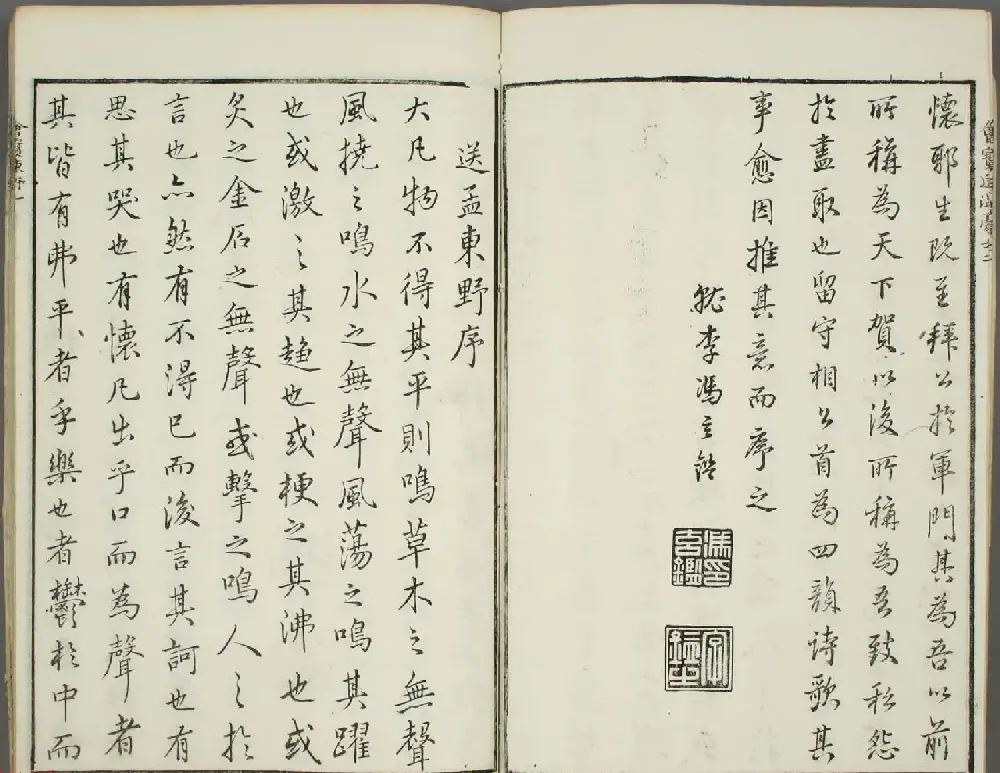 懷耶生既至拜公於軍門其為吾以前
所稱為天下賀以後所稱為吾致私怨
於盡取也留守相公首為四韻詩歌其
事愈因推其意而序之
就李馮玄鑑
馮印玄鑑
送孟東野序
大凡物不得其平則鳴草木之無聲
風撓之鳴水之無聲風蕩之鳴其躍
也或激之其趨也或梗之其沸也或
炙之金石之無聲或擊之鳴人之於
言也亦然有不得已而後言其訶也有
思其哭也有懷凡出乎口而為聲者
其皆有弗平者乎樂也者鬱於中而